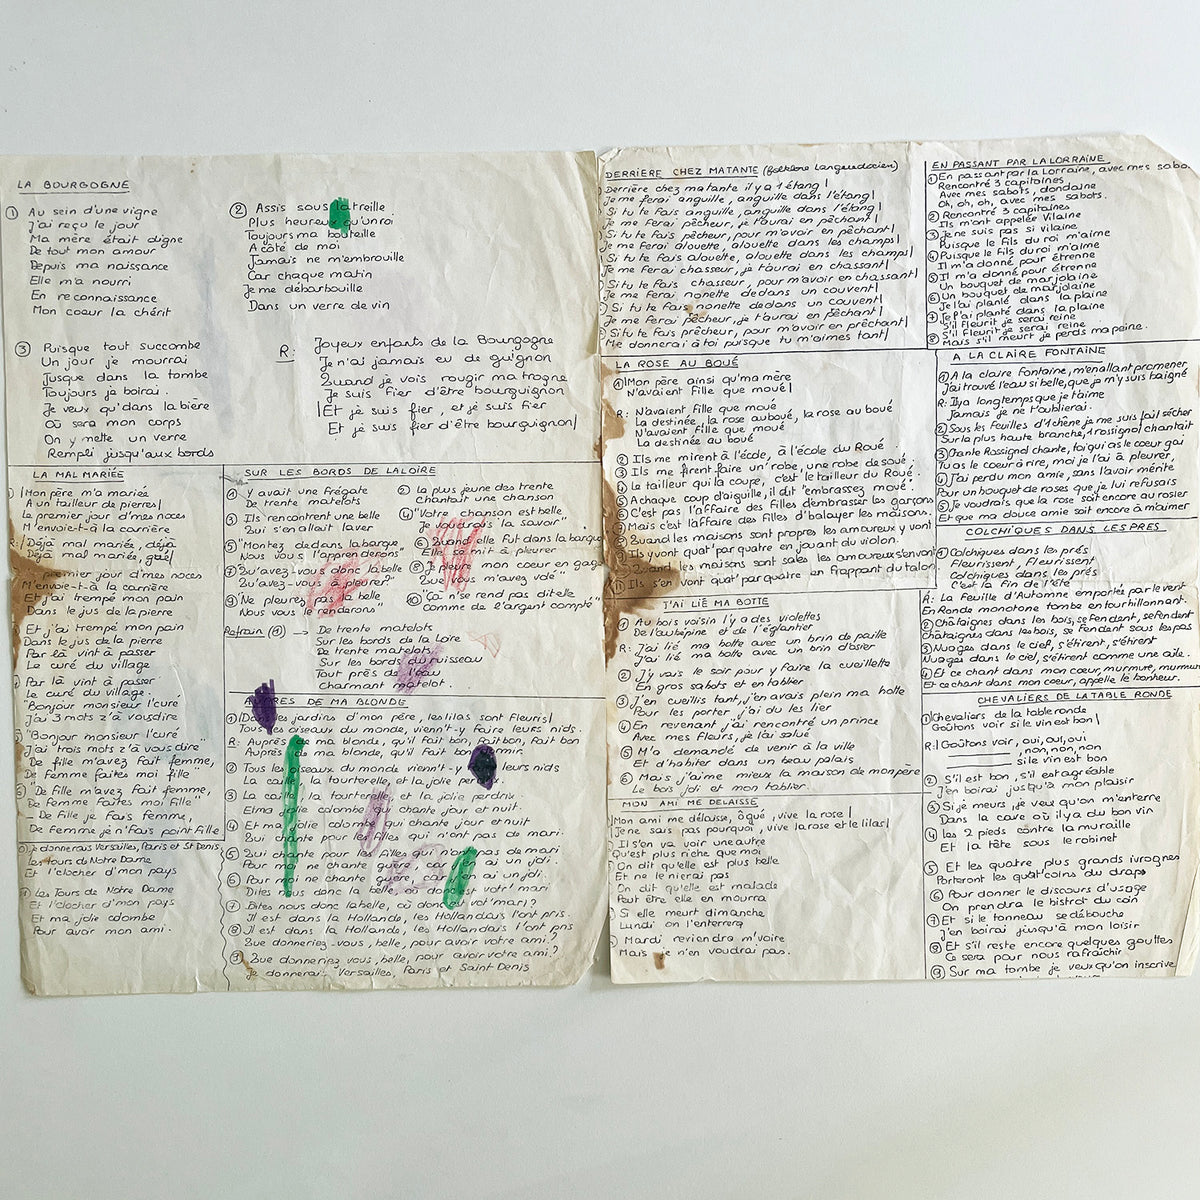 LA BOURGOGNE
① Au sein d'une vigre
J'ai reçu le jour
Ma mère était digne
De tout mon amour
Depuis ma naissance
Elle m'a nourri
En reconnaissance
Mon coeur la chérit
② Assis sous la treille
Plus heureux qu'un roi
Toujours ma bouteille
A côté de moi
Jamais ne m'embrouille
Car chaque matin
Je me débarbouille
Dans un verre de vin
③ Puisque tout succombe
Un jour je mourrai
Jusque dans la tombe
Toujours je boirai.
Je veux qu'dans la bière
Où sera mon corps
On y mette un verre
Rempli jusqu'aux bords
R: Joyeux enfants de la Bourgogne
Je n'ai jamais eu de guignon
Quand je vois rougir ma trogne
Je suis fier d'être bourguignon
|Et je suis fier, et je suis fier
Et je suis fier d'être bourguignon|
LA MAL MARIÉE
|Mon père m'a mariée
A un tailleur de pierres|
Le premier jour d'mes noces
M'envoie-t-à la carrière
R:/Déjà mal mariée, déjà
Déjà mal mariée, gué/
premier jour d'mes noces
M'envoie-t-à la carrière
Et j'ai trempé mon pain
Dans le jus de la pierre
Et j'ai trempé mon pain
Dans le jus de la pierre
Par là vint à passer
Le curé du village
Par là vint à passer
Le curé du village.
"Bonjour monsieur l'curé
J'ai 3 mots z'à vous dire
"Bonjour monsieur l'curé
J'ai trois mots z'à vous dire"
De fille m'avez fait femme,
De femme faites moi fille"
"De fille m'avez fait femme,
De femme faites moi fille"
- De fille je fais femme,
De femme je n'fais point fille
Je donnerais Versailles, Paris et St Denis,
les tours de Notre Dame
Et l'clocher d'mon pays
Les Tours de Notre Dame
Et l'clocher d'mon pays
Et ma jolie colombe
Pour avoir mon ami.
SUR LES BORDS DE LA LOIRE
① Y avait une frégate
De trente matelots
② La plus jeune des trente
Chantait une chanson
③ Ils rencontrent une belle
Qui s'en allait laver
④ "Votre chanson est belle
Je voudrais la savoir"
⑤ "Montez dedans la barque
Nous vous l'apprenderons"
⑥ Quand elle fut dans la barque
Elle se mit à pleurer
⑦ "Qu'avez-vous donc la belle
Qu'avez-vous à pleurer?"
⑧ "Je pleure mon coeur en gage
Que vous m'avez volé"
⑨ "Ne pleurez pas la belle
Nous vous le renderons"
⑩ "Ça n'se rend pas dit elle
Comme de l'argent compté"
Refrain (1) → De trente matelots
Sur les bords de la Loire
De trente matelots
Sur les bords du ruisseau
Tout près de l'eau
Charmant matelot.
AUPRES DE MA BLONDE
① Dans les jardins d'mon père, les lilas sont fleuris|
Tous les oiseaux du monde, vienn't-y faire leurs nids.
R: Auprès de ma blonde, qu'il fait bon, fait bon, fait bon
Auprès de ma blonde, qu'il fait bon dormir.
② Tous les oiseaux du monde vienn't-y leurs nids
La caille, la tourterelle, et la jolie perdrix
③ La caille, la tourterelle, et la jolie perdrix
Et ma jolie colombe qui chante jour et nuit.
④ Et ma jolie colombe qui chante jour et nuit
Qui chante pour les filles qui n'ont pas de mari.
⑤ Qui chante pour les filles qui n'ont pas de mari
Pour moi ne chante guère, car j'en ai un joli.
⑥ Pour moi ne chante guère, car j'en ai un joli.
Dites nous donc la belle, où donc est votr' mari
⑦ Dites nous donc la belle, où donc est vot' mari?
Il est dans la Hollande, les Hollandais l'ont pris.
⑧ Il est dans la Hollande, les Hollandais l'ont pris
Que donneriez-vous, belle, pour avoir votre ami?
⑨ Que donneriez vous, belle, pour avoir votre ami?
Je donnerai Versailles, Paris et Saint Denis
DERRIÈRE CHEZ MATANTE (folklore languedocien)
Derrière chez matante il y a 1 étang|
Je me ferai anguille, anguille dans l'étang|
Si tu te fais anguille, anguille dans l'étang|
Je me ferai pêcheur, je t'aurai en pêchant|
Si tu te fais pêcheur, pour m'avoir en pêchant|
Je me ferai alouette, alouette dans les champs|
Si tu te fais alouette, alouette dans les champs|
Je me ferai chasseur, je t'aurai en chassant|
Si tu te fais chasseur, pour m'avoir en chassant|
Je me ferai nonette dedans un couvent|
Si tu te fais nonette dedans un couvent|
Je me ferai pêcheur, je t'aurai en pêchant|
Si tu te fais prêcheur, pour m'avoir en prêchant|
Me donnerai à toi puisque tu m'aimes tant|
LA ROSE AU BOUÉ
① |Mon père ainsi qu'ma mère
N'avaient fille que moué|
R: N'avaient fille que moué
La destinée, la rose au boué, la rose au boué
N'avaient fille que moué
La destinée au boué
② Ils me mirent à l'école, à l'école du Roué.
③ Ils me firent faire un' robe, une robe de soué.
④ Le tailleur qui la coupe, c'est le tailleur du Roué.
⑤ A chaque coup d'aiguille, il dit "embrassez moué".
⑥ C'est pas l'affaire des filles d'embrasser les garçons
⑦ Mais c'est l'affaire des filles d'balayer les maisons.
⑧ Quand les maisons sont propres les amoureux y vont
⑨ Ils y vont quat' par quatre en jouant du violon.
⑩ Quand les maisons sont sales les amoureux s'en vont
⑪ Ils s'en vont quat' par quatre en frappant du talon
J'AI LIÉ MA BOTTE
① Au bois voisin l'y a des violettes
De l'aubépine et de l'églantier
R: J'ai lié ma botte avec un brin de paille
J'ai lié ma botte avec un brin d'osier
② J'y vais le soir pour y faire la cueillette
En gros sabots et en tablier
③ J'en cueillis tant, j'en avais plein ma hotte
Pour les porter j'ai du les lier
④ En revenant j'ai rencontré un prince
Avec mes fleurs, je l'ai salué
⑤ M'a demandé de venir à la ville
Et d'habiter dans un beau palais
⑥ Mais j'aime mieux la maison de mon père
Le bois joli et mon tablier.
MON AMI ME DELAISSE
Mon ami me délaisse, ô gué, vive la rose|
|Je ne sais pas pourquoi, vive la rose et le lilas|
Il s'en va voir une autre
Qu'est plus riche que moi
On dit qu'elle est plus belle
Et ne le nierai pas
On dit qu'elle est malade
Peut être elle en mourra
Si elle meurt dimanche
Lundi on l'enterrera
Mardi reviendra m'voire
Mais je n'en voudrai pas.
EN PASSANT PAR LA LORRAINE
① En passant par la Lorraine, avec mes sabo
Rencontré 3 capitaines
Avec mes sabots, dondaine
Oh, oh, oh, avec mes sabots.
② Rencontré 3 capitaines
Ils m'ont appelée Vilaine
③ Je ne suis pas si vilaine
Puisque le fils du roi m'aime
④ Puisque le fils du roi m'aime
Il m'a donné pour étrenne
⑤ Il m'a donné pour étrenne
Un bouquet de marjolaine
⑥ Un bouquet de marjolaine
Je l'ai planté dans la plaine
⑦ Je l'ai planté dans la plaine
S'il fleurit je serai reine
⑧ S'il fleurit je serai reine
Mais s'il meurt je perds ma peine.
A LA CLAIRE FONTAINE
① A la claire fontaine, m'en allant promener,
J'ai trouvé l'eau si belle, que je m'y suis baigné
R: Il y a longtemps que je t'aime
Jamais je ne t'oublierai.
② Sous les feuilles d'1 chêne je me suis fait sécher
Sur la plus haute branche, 1 rossignol chantait
③ Chante Rossignol chante, toi qui as le coeur gai
Tu as le coeur à rire, moi je l'ai à pleurer,
④ J'ai perdu mon amie, sans l'avoir mérité
Pour un bouquet de roses que je lui refusais
⑤ Je voudrais que la rose soit encore au rosier
Et que ma douce amie soit encore à m'aimer
COLCHIQUES DANS LES PRES
① Colchiques dans les prés
Fleurissent, Fleurissent
Colchiques dans les prés
C'est la fin de l'été
R: La feuille d'Automne emportée par le vent
En Ronde monotone tombe en tourbillonnant.
② Châtaignes dans les bois, se fendent, se fendent
Châtaignes dans les bois, se fendent sous les pas
③ Nuages dans le ciel, s'étirent, s'étirent
Nuages dans le ciel, s'étirent comme une aile.
④ Et ce chant dans mon coeur, murmure, murmure
Et ce chant dans mon coeur, appelle le bonheur.
CHEVALIERS DE LA TABLE RONDE
① |Chevaliers de la table ronde
Goûtons voir si le vin est bon|
R: | Goûtons voir, oui, oui, oui
, non, non, non
si le vin est bon
② S'il est bon, s'il est agréable
J'en boirai jusqu'à mon plaisir
③ Si je meurs, je veux qu'on m'enterre
Dans la cave où il y a du bon vin
④ Les 2 pieds contre la muraille
Et la tête sous le robinet
⑤ Et les quatre plus grands ivrognes
Porteront les quat' coins du draps
⑥ Pour donner le discours d'usage
On prendra le bistrot du coin
⑦ Et si le tonneau se débouche
J'en boirai jusqu'à mon loisir
⑧ Et s'il reste encore quelques gouttes
Ca sera pour nous rafraichir
⑨ Sur ma tombe je veux qu'on inscrive